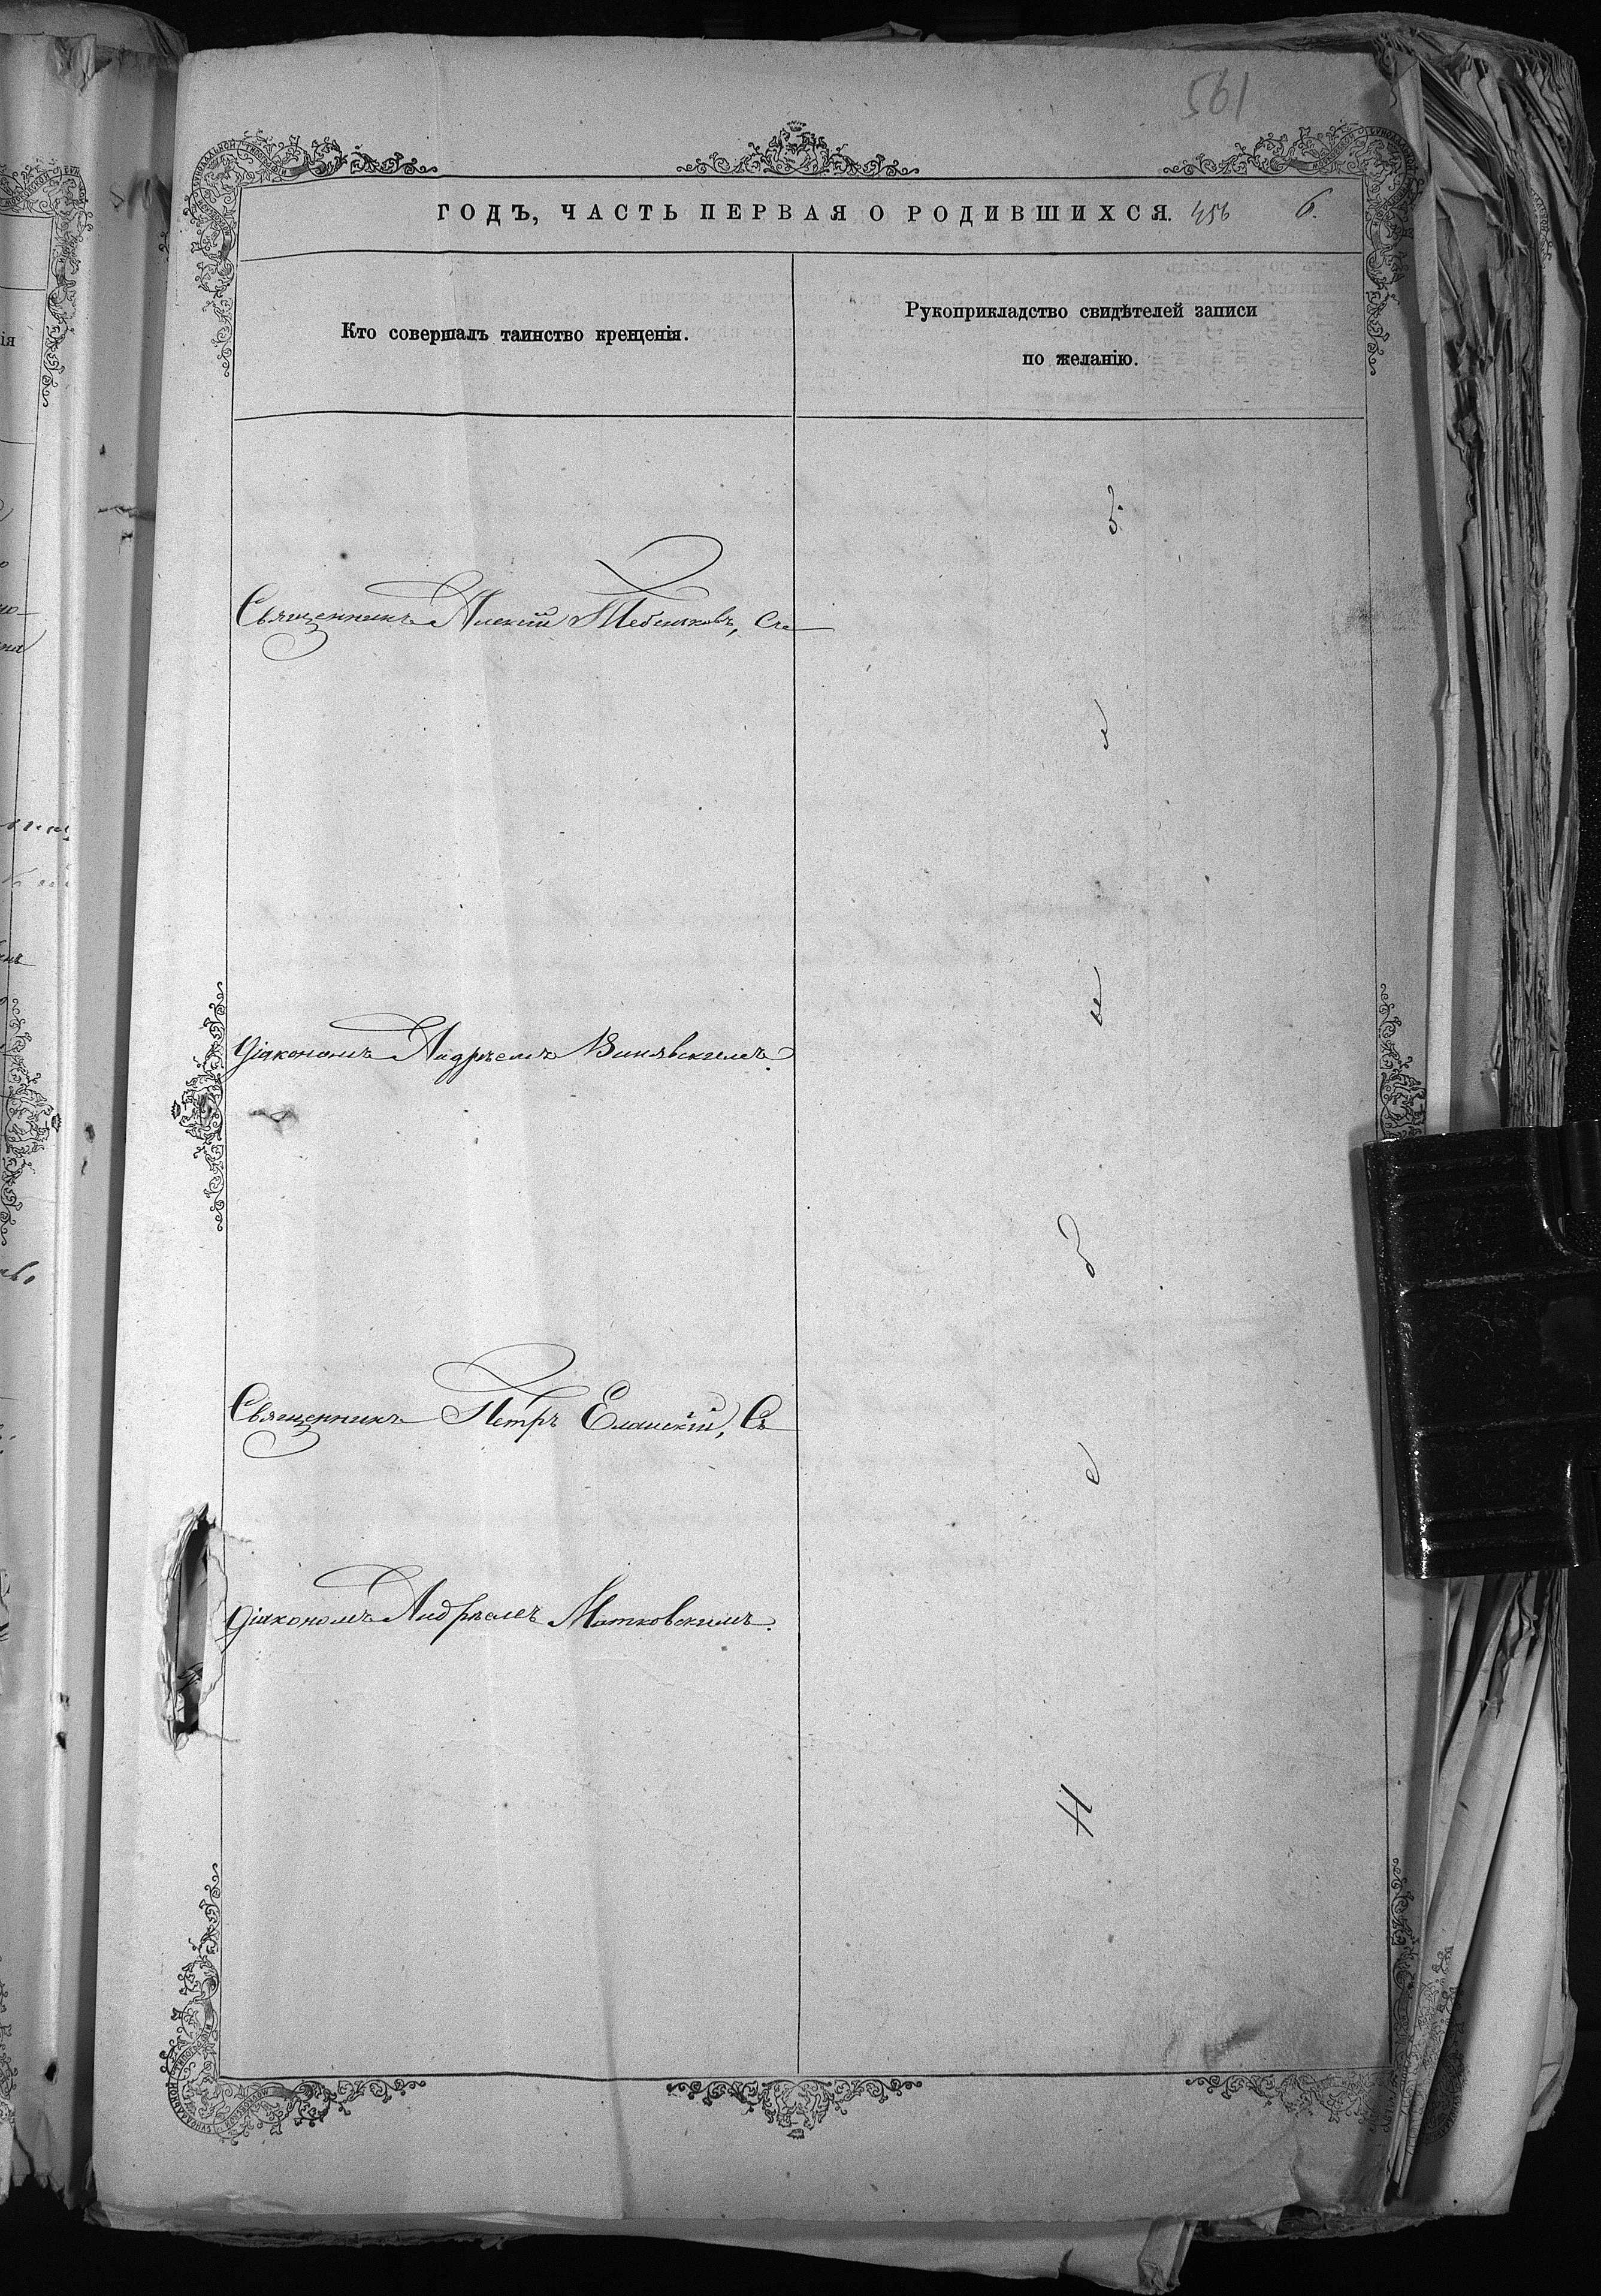 561
ГОДЪ, ЧАСТЬ ПЕРВАЯ О РОДИВШИХСЯ. 456 6.
Кто совершалъ таинство крещенія.
Рукоприкладство свидѣтелей записи
по желанію.
Священникъ Алексій Тебеньковъ, Съ
Діакономъ Андреемъ
Священникъ Петръ Еланскій, Съ
Діакономъ Андреемъ Матковскимъ.